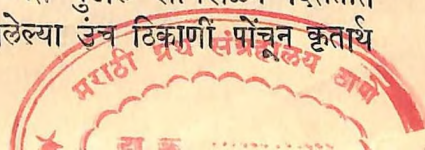 लेल्या उंच ठिकाणीं पोंचून कृतार्थ
मराठी ग्रंथ संग्रहालय ठाणे